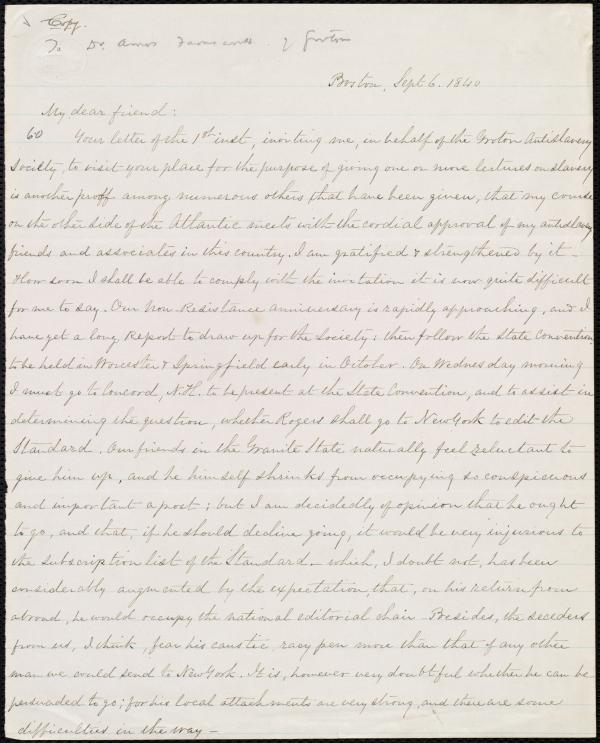 Copy.
To Dr. Amos Farnsworth of Groton
Boston, Sept 6. 1840
My dear friend:
60 Your letter of the 1st inst, inviting me, in behalf of the Groton Antislavery
Society, to visit your place for the purpose of giving one or more lectures on slavery
is another proff among numerous others, that have been given, that my course
on the other side of the Atlantic meets with the cordial approval of my antislavery
friends and associates in this country. I am gratified & strengthened by it -
How soon I shall be able to comply with the invitation it is now quite difficult
for me to say. Our Non-Resistance anniversary is rapidly approaching, and I
have yet a long Report to draw up for the Society; then follow the State Conventions
to be held in Worcester & Springfield early in October. On Wednesday morning
I must go to Concord, N.H. to be present at the State Convention, and to assist in
determining the question, whether Rogers shall go to New York to edit the
Standard. Our friends in the Granite State naturally feel reluctant to
give him up, and he himself shrinks from occupying so conspicuous
and important a post; but I am decidedly of opinion that he ought
to go, and that, if he should decline going, it would be very injurious to
the subscription list of the Standard - which, I doubt not, has been
considerably augmented by the expectation, that, on his return from
abroad, he would occupy the national editorial chair. Besides, the seceders
from us, I think, fear his caustic, racy pen more than that of any other
man we could send to New York. It is, however very doubtful whether he can be
persuaded to go; for his local attachments are very strong, and there are some
difficulties in the way -